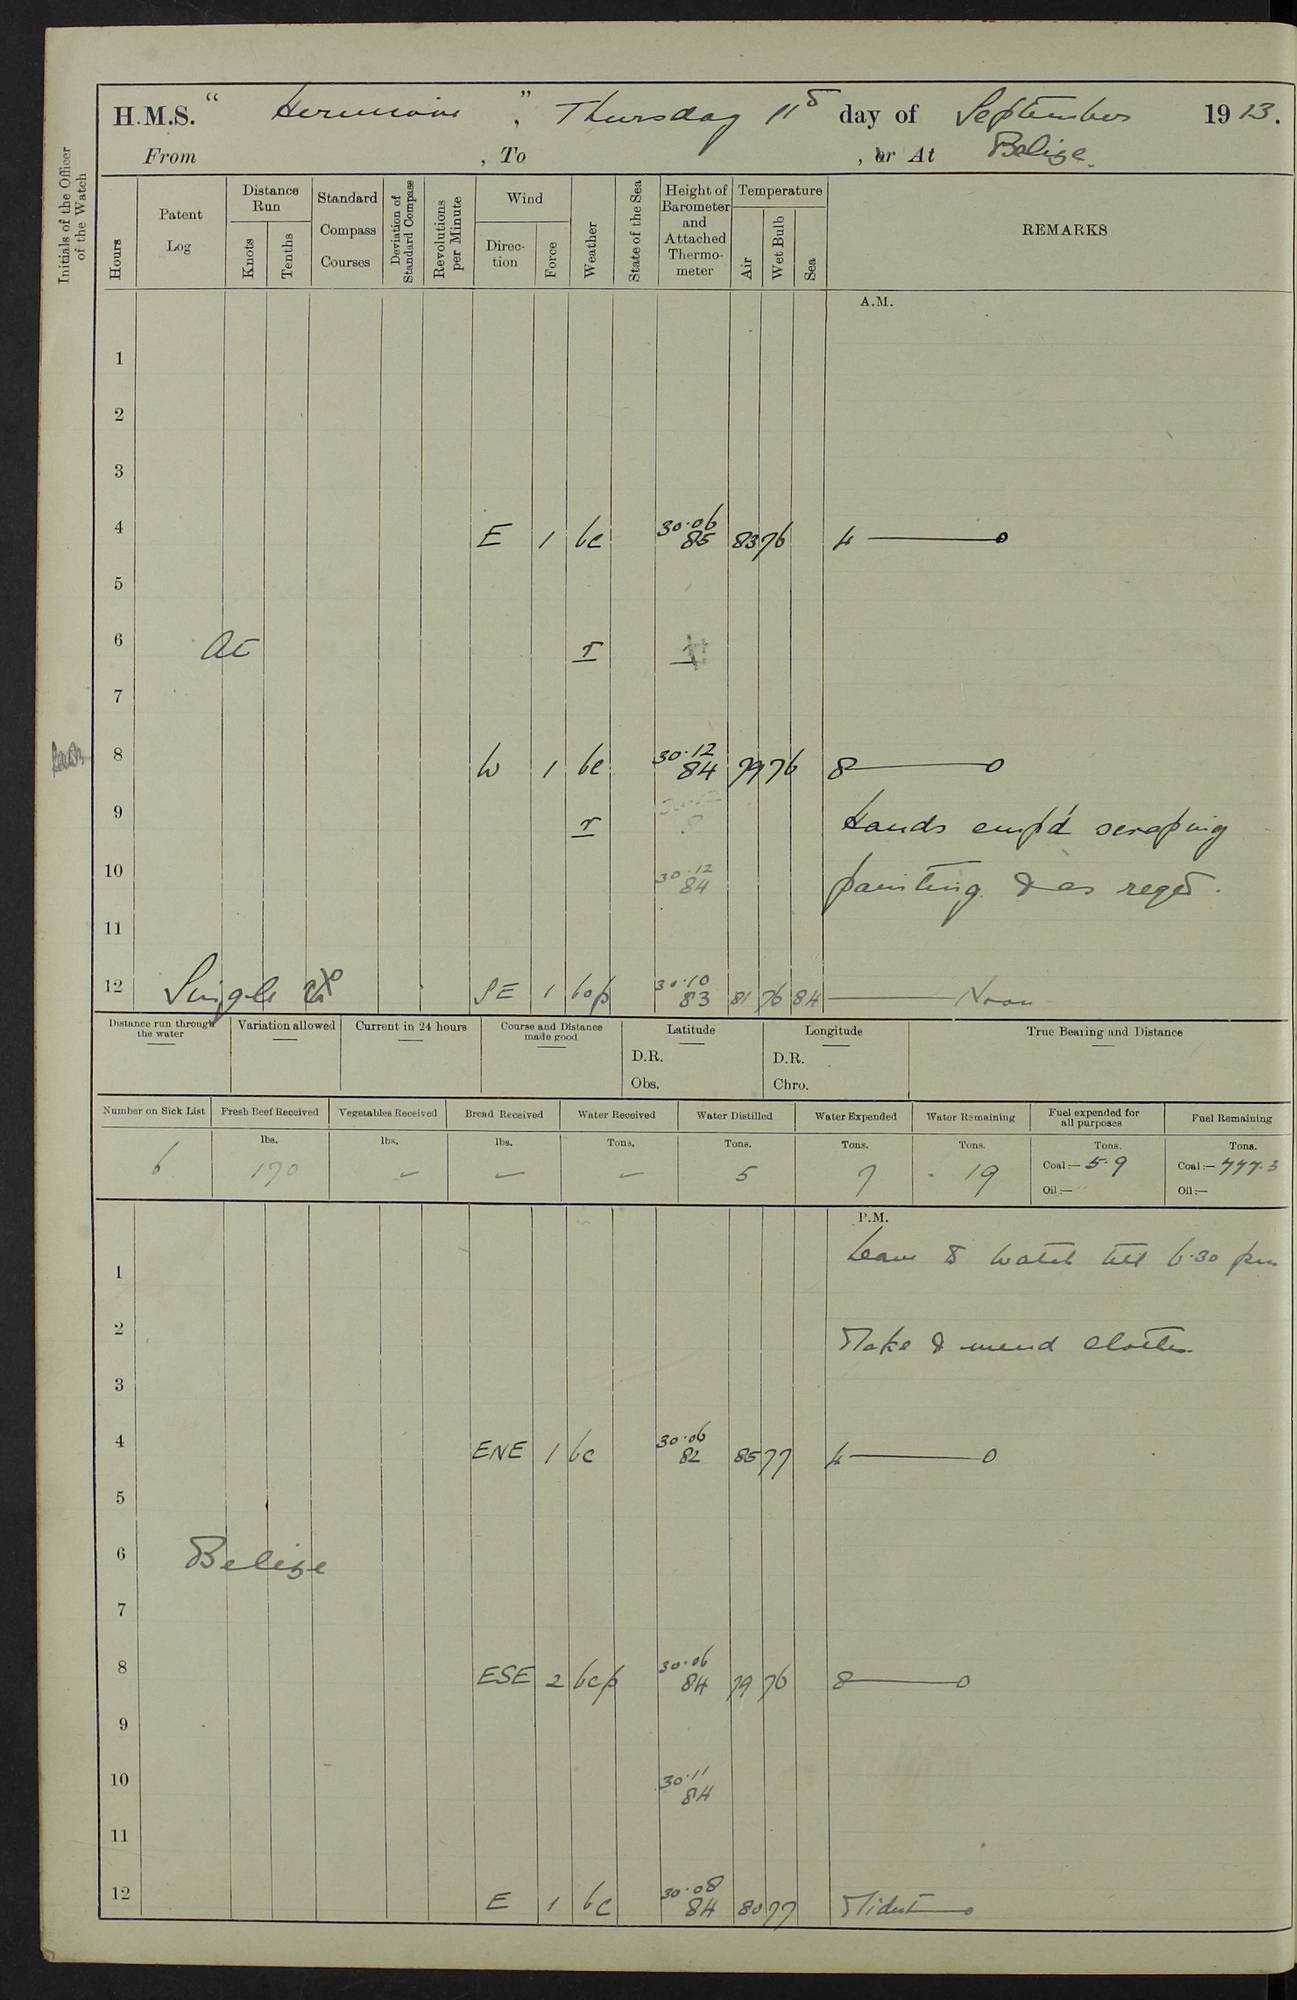 H.M.S. " Hermione ", Thursday 11th day of September 1913.
From , To , or At Belize.
Initials of the Officer of the Watch
Hours
Patent Log
Distance Run
Knots
Tenths
Standard Compass Courses
Deviation of Standard Compass
Revolutions per Minute
Wind
Direc-tion
Force
Weather
State of the Sea
Height of Barometer and Attached Thermo-meter
Temperature
Air
Wet Bulb
Sea
REMARKS
A.M.
1
2
3
4 E 1 bc 30.06 85 83 76 4
5
6 At r
7
8 W 1 bc 30.12 84 79 76 8
9 r Hands emp'd scraping
10 30.12 84 painting & as reqd.
11
12 Single SE 1 bop 30.10 83 81 76 84 Noon
Distance run through the water
Variation allowed
Current in 24 hours
Course and Distance made good
Latitude
D.R.
Obs.
Longitude
D.R.
Chro.
True Bearing and Distance
Number on Sick List
6
Fresh Beef Received
lbs.
170
Vegetables Received
lbs.
–
Bread Received
lbs.
–
Water Received
Tons.
–
Water Distilled
Tons.
5
Water Expended
Tons.
7
Water Remaining
Tons.
19
Fuel expended for all purposes
Tons.
Coal:— 5.9
Oil:—
Fuel Remaining
Tons.
Coal:— 447.3
Oil:—
P.M.
Leave to watch till 6.30 pm
1
2 Make & mend clothes
3
4 ENE 1 bc 30.06 82 85 77 4
5
6 Belize
7
8 ESE 2 bcp 30.06 84 79 76 8
9
10 30.11 84
11
12 E 1 bc 30.08 84 80 77 Midnt